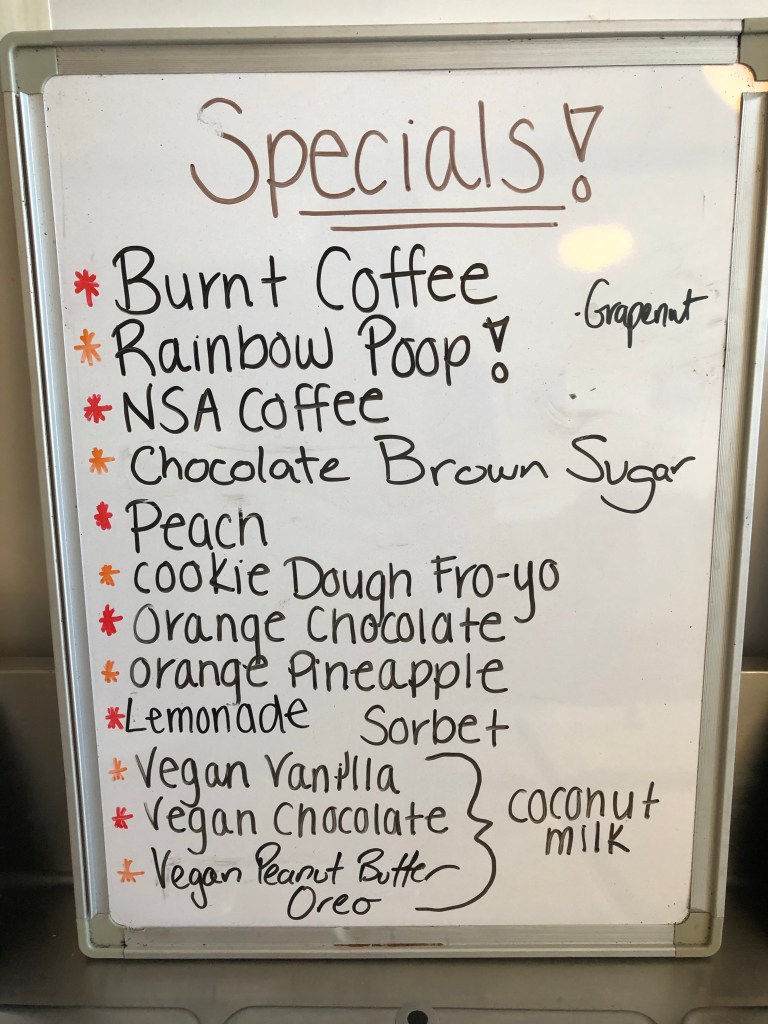 Specials!
* Burnt Coffee
·Grapenut
* Rainbow Poop!
* NSA Coffee
* Chocolate Brown Sugar
* Peach
* Cookie Dough Fro-yo
* Orange Chocolate
* orange Pineapple
* Lemonade Sorbet
* Vegan Vanilla
* Vegan Chocolate
* Vegan Peanut Butter
Oreo
coconut
milk